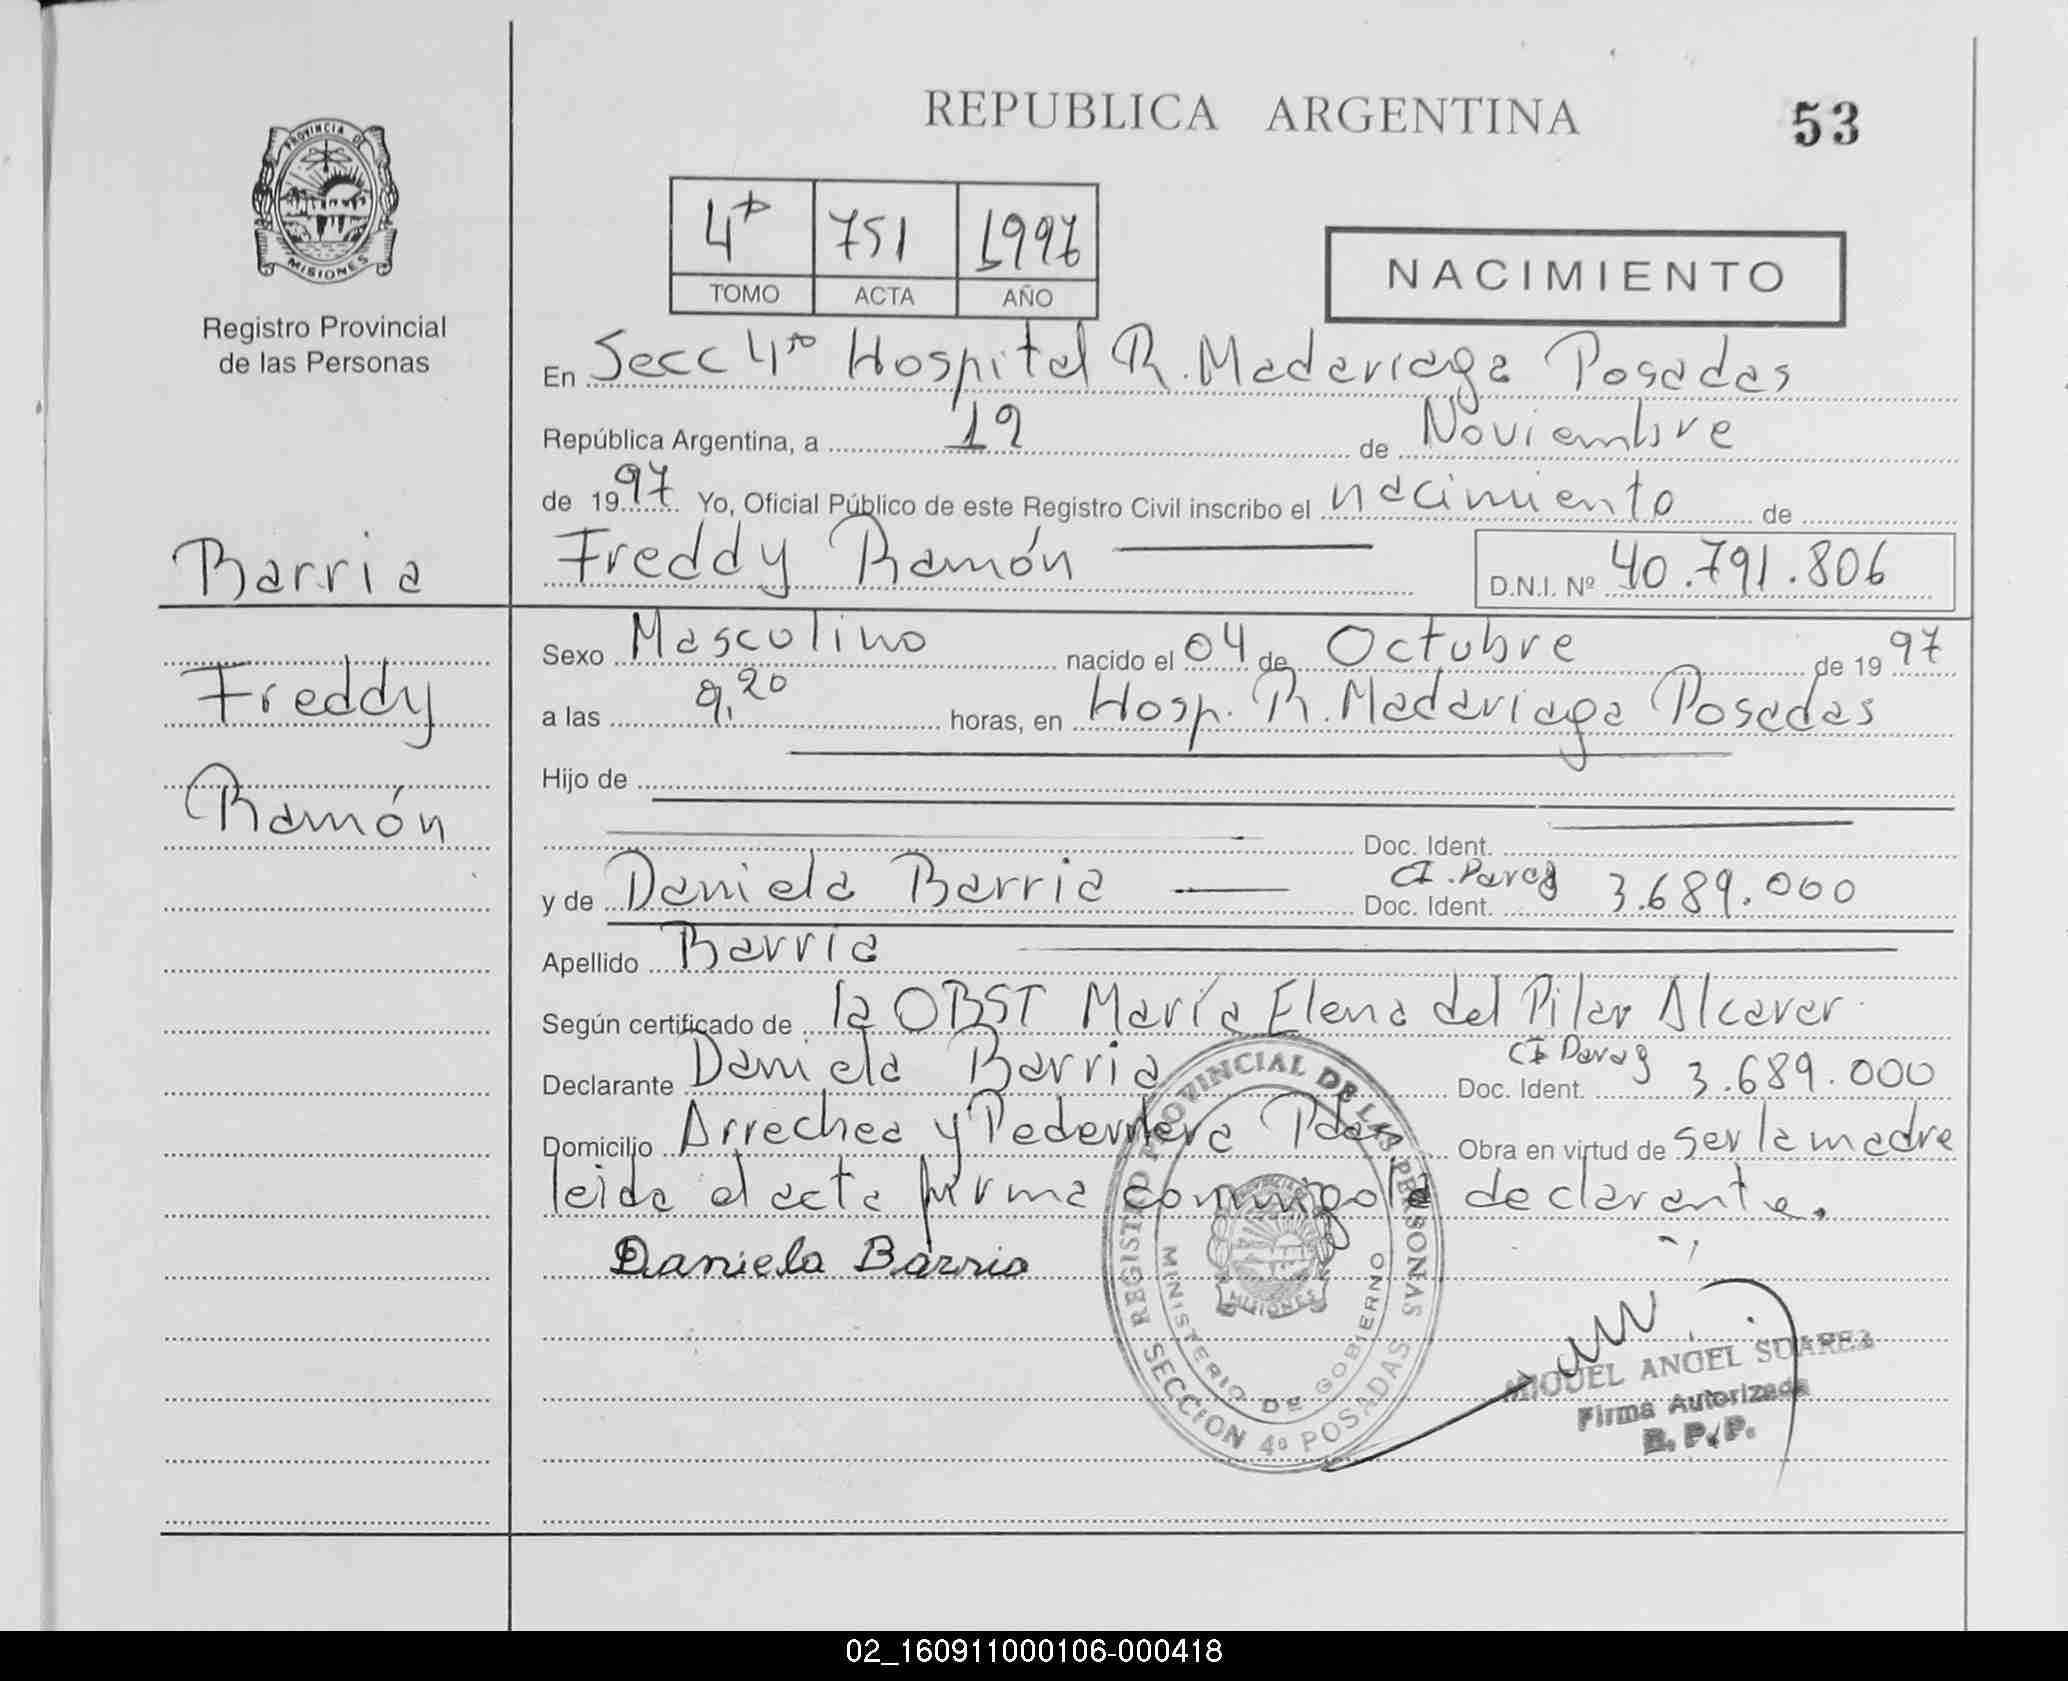 REPUBLICA ARGENTINA
53
PROVINCIA DE
MISIONES
Registro Provincial
de las Personas
4to 751 1997
TOMO ACTA AÑO
NACIMIENTO
En Secc 4ta Hospital R. Madariaga Posadas
República Argentina, a 19 de Noviembre
de 1997 Yo, Oficial Público de este Registro Civil inscribo el nacimiento de
Barria
Freddy Ramón
D.N.I. Nº 40.791.806
Freddy
Ramón
Sexo Masculino nacido el 04 de Octubre de 1997
a las 9,20 horas, en Hosp. R. Madariaga Posadas
Hijo de
Doc. Ident.
y de Daniela Barria Doc. Ident. CI. Parag 3.689.000
Apellido Barria
Según certificado de la OBST María Elena del Pilar
Declarante Daniela Barria Doc. Ident. CI Parag 3.689.000
Domicilio Arrechea y Pedernera Pdas. Obra en virtud de ser la madre
leida el acta firma conmigo la declarante.
Daniela Barria
REGISTRO PROVINCIAL DE LAS PERSONAS
MINISTERIO DE GOBIERNO
MISIONES
SECCION 4ª POSADAS
MIGUEL ANGEL SUAREZ
Firma Autorizada
R. P. P.
02_160911000106-000418